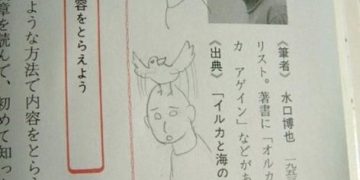 《筆者》 水口博也 一九五
リスト。著書に「オルカ
カ アゲイン」などがあ
《出典》 「イルカと海の
容をとらえよう
ような方法で内容をとら
章を読んで、初めて知っ